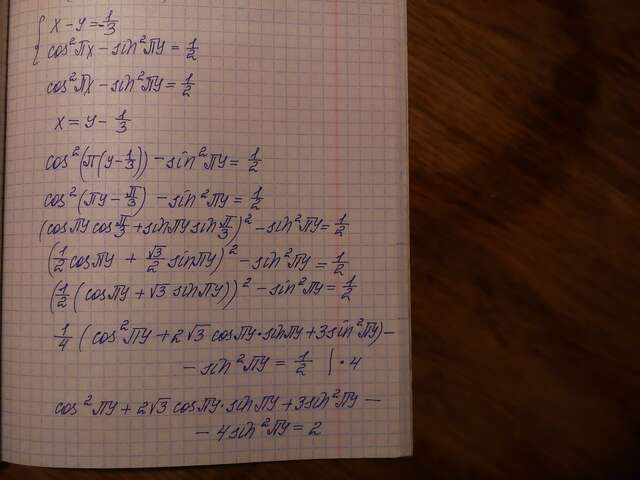 { x - y = -1/3
cos²πx - sin²πy = 1/2
cos²πx - sin²πy = 1/2
x = y - 1/3
cos²(π(y - 1/3)) - sin²πy = 1/2
cos²(πy - π/3) - sin²πy = 1/2
(cosπy cos π/3 + sinπy sin π/3)² - sin²πy = 1/2
(1/2 cosπy + √3/2 sinπy)² - sin²πy = 1/2
(1/2 (cosπy + √3 sinπy))² - sin²πy = 1/2
1/4 (cos²πy + 2√3 cosπy·sinπy + 3sin²πy) -
- sin²πy = 1/2 | · 4
cos²πy + 2√3 cosπy·sinπy + 3sin²πy -
- 4sin²πy = 2